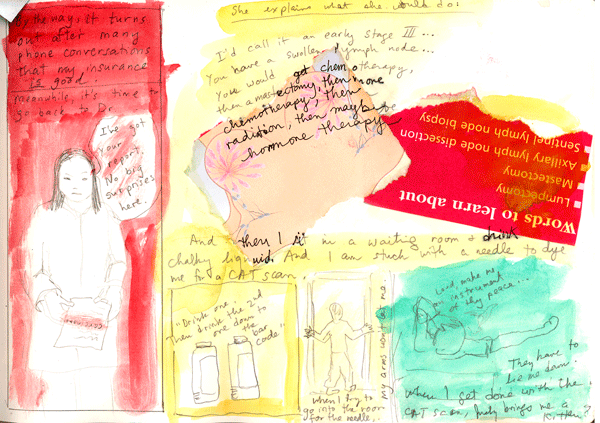 By the way, it turns
out after many
phone conversations
that my insurance
is good.
Meanwhile, it's time to
go back to Dr.
I've got
your
report.
No big
surprises
here.
She explains what she would do:
I'd call it an early stage III...
You have a swollen lymph node...
You would get chemotherapy,
then a mastectomy, then more
chemotherapy, then
radiation, then maybe
hormone therapy
Words to learn about
Lumpectomy
Mastectomy
Axillary lymph node dissection
Sentinel lymph node biopsy
And then I sit in a waiting room & drink
chalky liquid. And I am stuck with a needle to dye
me for a CAT scan.
"Drink one.
Then drink the 2nd
one down to
the bar
code."
my arms won't let me
when I try to
go into the room
for the needle.
Lord, make me
an instrument
of thy peace...
They have to
lie me down.
When I get done with the
CAT scan, Judy brings me a
kitten?